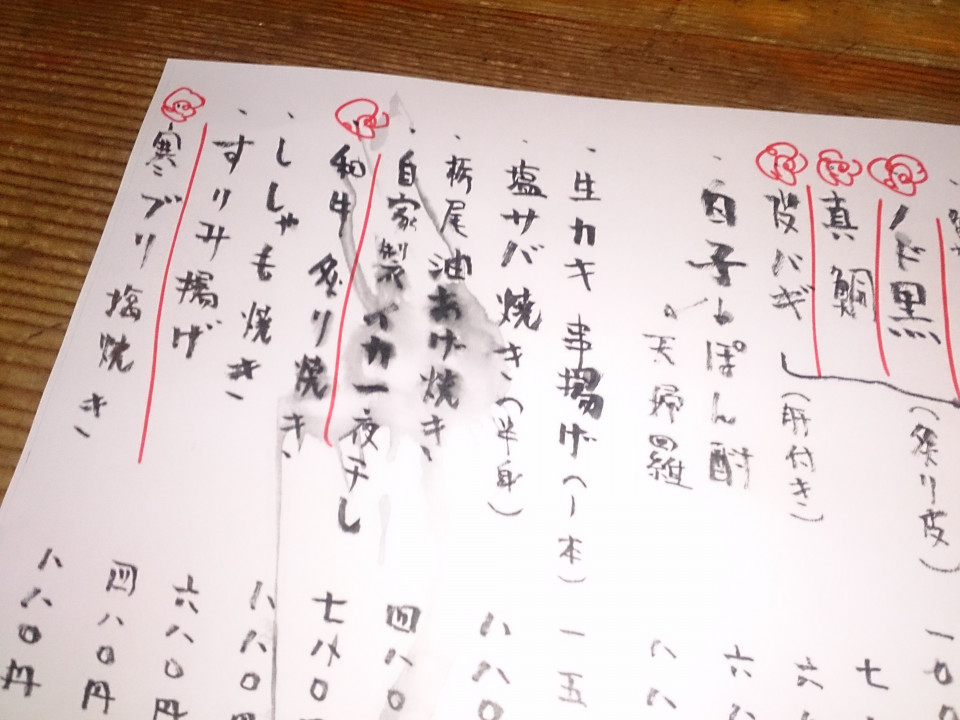 ノド黒（炙り皮）
真鯛 七
皮ハギ（肝付き） 六
・白子 ぽん酢 六八
〃 天婦羅 八八
・生カキ 串揚げ（一本） 一五
・塩サバ焼き（半身） 八八〇
・栃尾油あげ焼き 四八〇
・自家製イカ一夜干し 七八〇
和牛炙り焼き 八八〇円
・ししゃも焼き 六八〇円
・すりみ揚げ 四八〇円
寒ブリ塩焼き 八八〇円